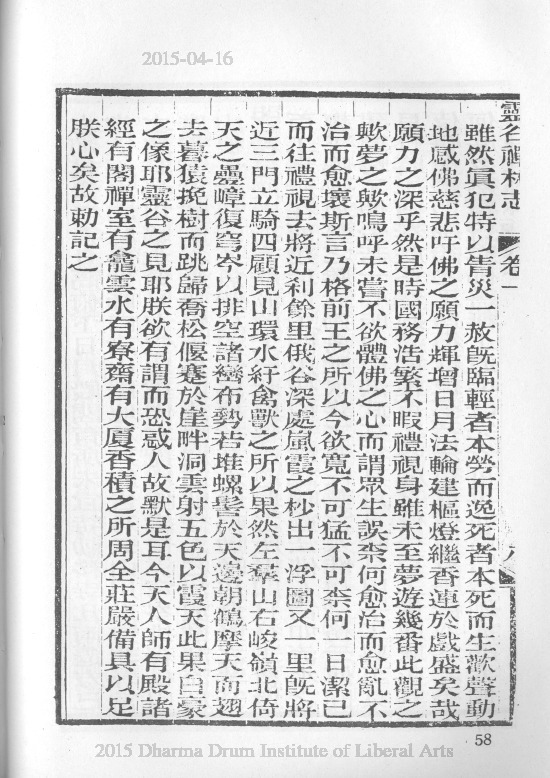 2015-04-16
靈谷禪林志 卷一 八
雖然眞犯特以眚災一赦旣臨輕者本勞而逸死者本死而生歡聲動
地感佛慈悲吁佛之願力輝增日月法輪建樞燈繼香連於戲盛矣哉
願力之深乎然是時國務浩繁不暇禮視身雖未至夢遊幾番此觀之
歟夢之歟鳴呼未嘗不欲體佛之心而謂眾生誤柰何愈治而愈亂不
治而愈壞斯言乃格前王之所以今欲寬不可猛不可柰何一日潔已
而往禮視去將近利餘里俄谷深處嵐霞之杪出一浮圖又一里旣將
近三門立騎四顧見山環水紆禽獸之所以果然左羣山右峻嶺北倚
天之疊嶂復穹岑以排空諸巒布勢若堆螺髻於天邊朝鶴摩天而翅
去暮猿挽樹而跳歸喬松偃蹇於崖畔洞雲射五色以霞天此果白豪
之像耶靈谷之見耶朕欲有謂而恐惑人故默是耳今天人師有殿諸
經有閣禪室有龕雲水有寮齋有大厦香積之所周全莊嚴備具以足
朕心矣故勅記之
58
2015 Dharma Drum Institute of Liberal Arts